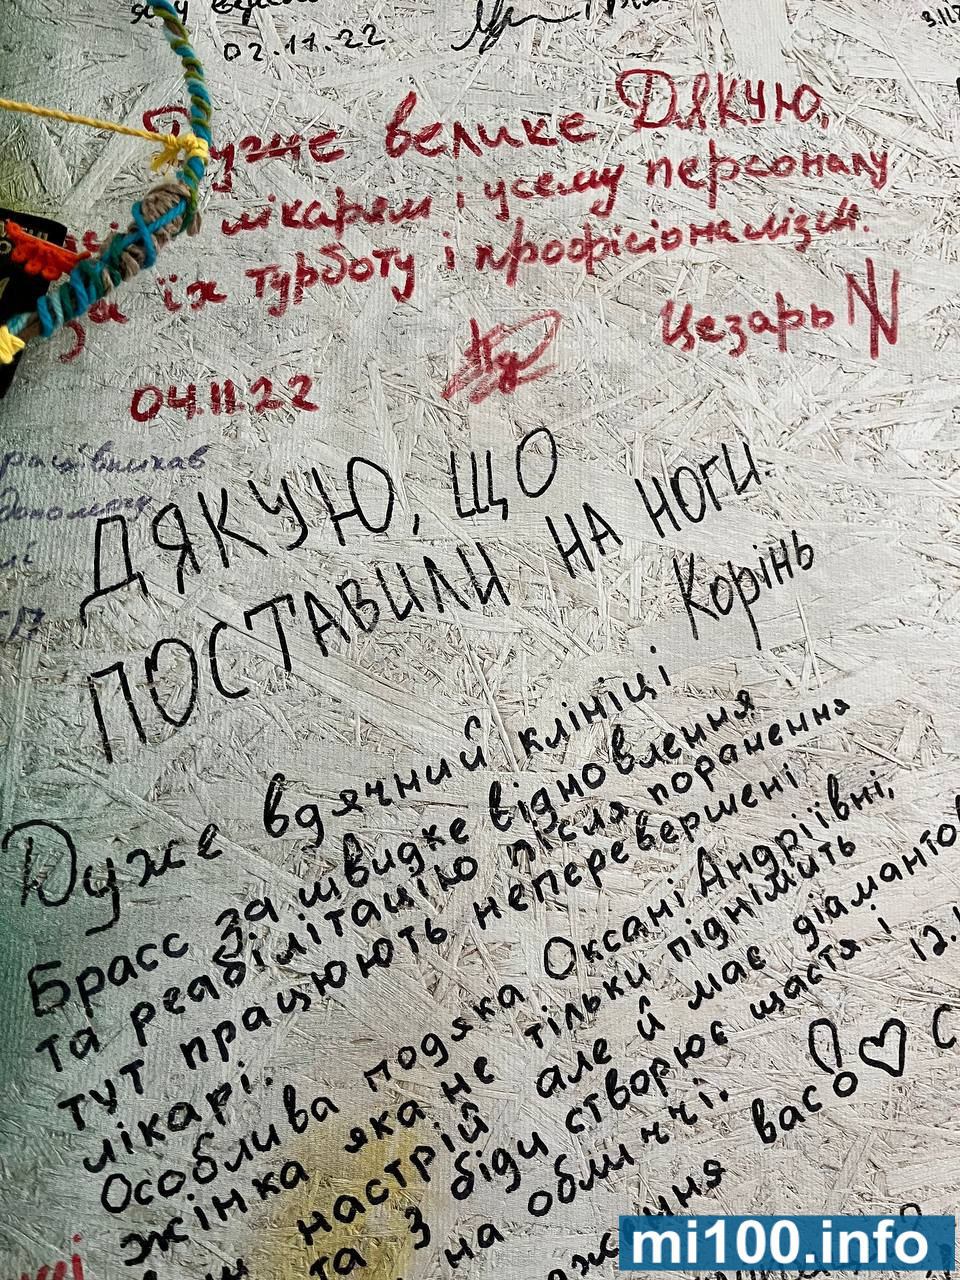 02.11.22
Дуже велике Дякую,
лікарям і усему персоналу
за їх турботу і професіоналізм.
Цезарь
04.11.22
допомогу
ДЯКУЮ, ЩО
ПОСТАВИЛИ НА НОГИ.
Корінь
Дуже вдячний клініці
Брасс за швидке відновлення
та реабілітацію після поранення
тут працюють неперевершені
лікарі.
Особлива подяка Оксані Андріївні,
жінка яка не тільки піднімить
настрій але й має діамантов
та з біди створює щастя і
на обличчі. 12.
вас! ♡
mi100.info